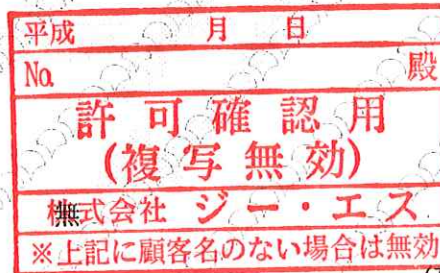 平成 月 日
No. 殿
許可確認用
(複写無効)
株式会社 ジー・エス
※上記に顧客名のない場合は無効